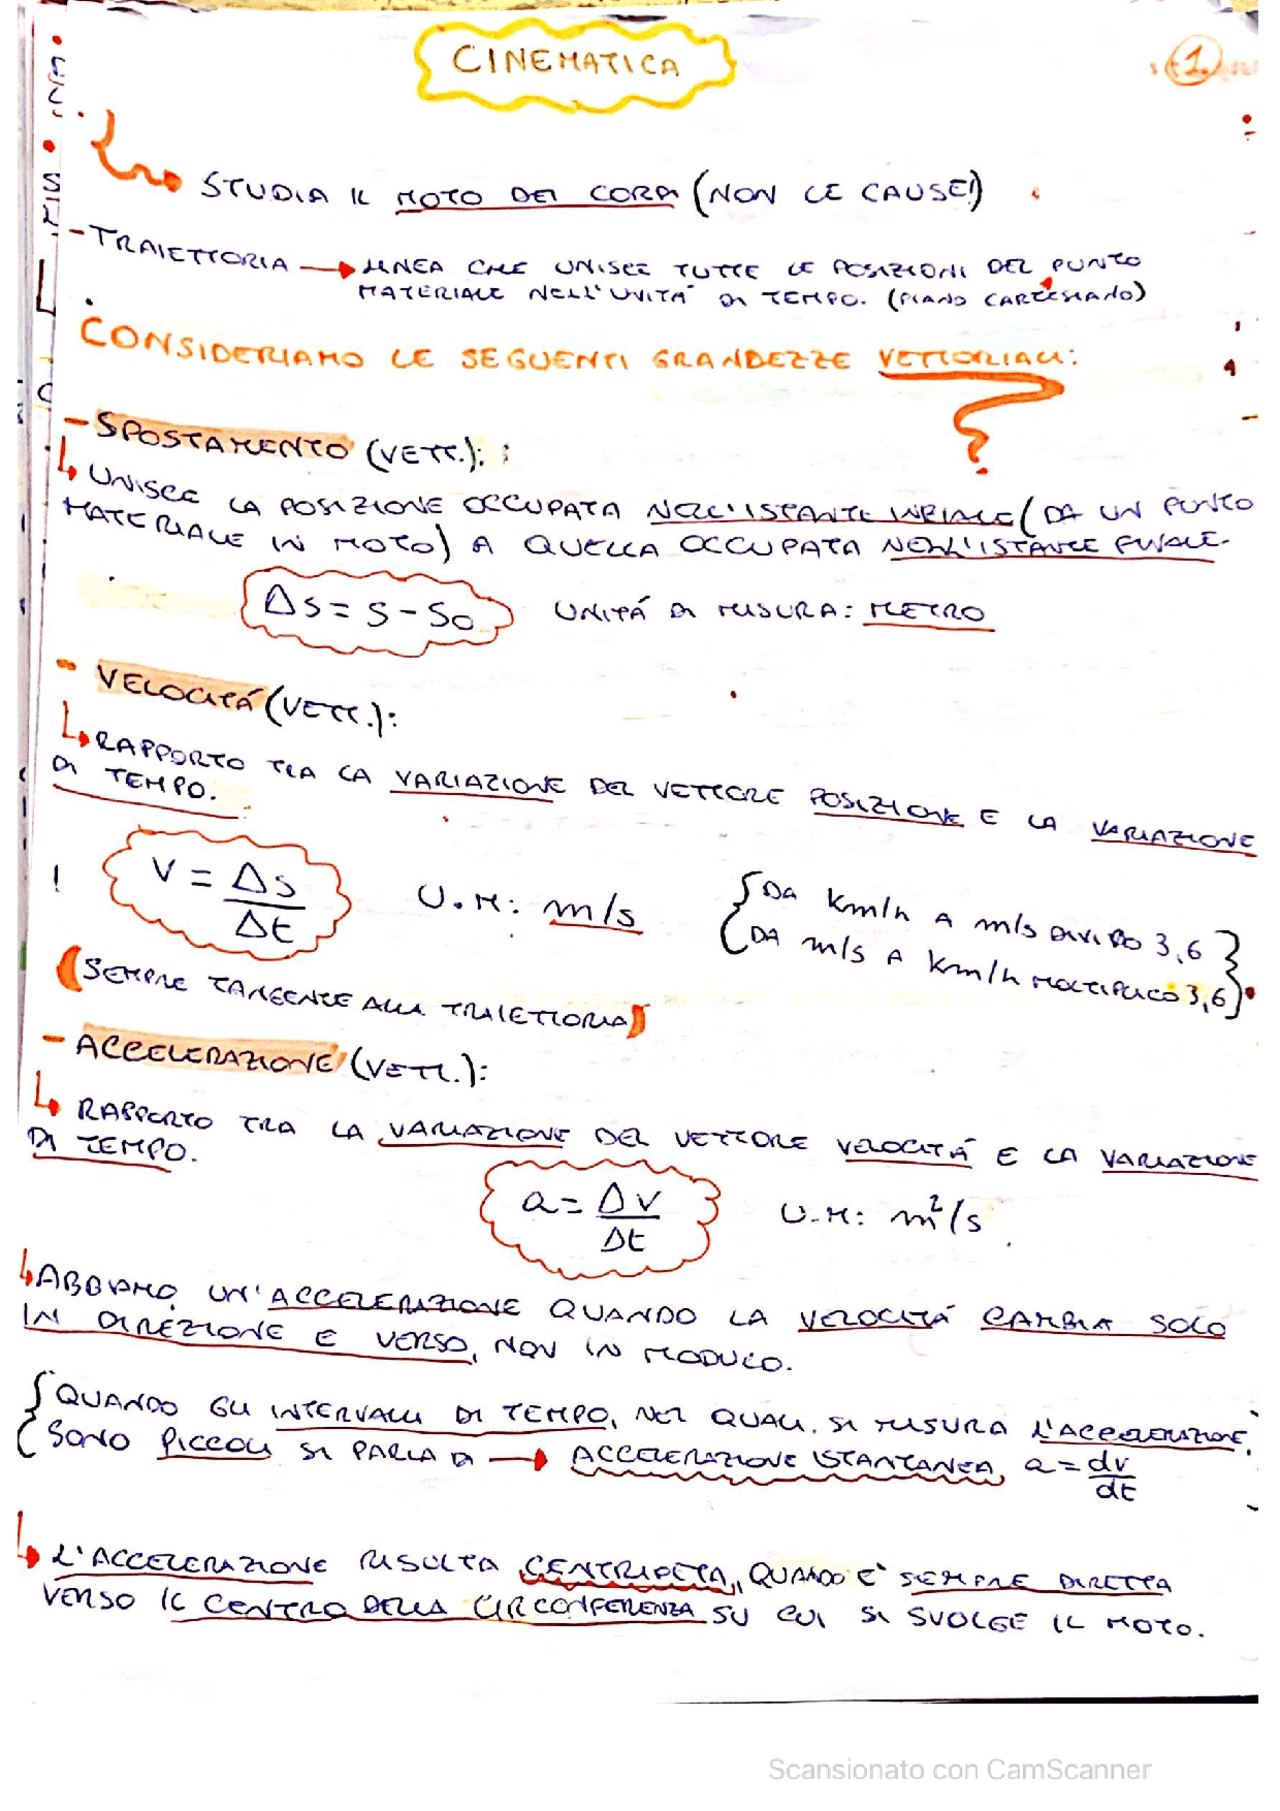 CINEMATICA
1
STUDIA IL MOTO DEI CORPI (NON LE CAUSE!)
- TRAIETTORIA → LINEA CHE UNISCE TUTTE LE POSIZIONI DEL PUNTO
MATERIALE NELL'UNITÁ DI TEMPO. (PIANO CARTESIANO)
CONSIDERIAMO LE SEGUENTI GRANDEZZE VETTORIALI:
?
- SPOSTAMENTO (VETT.):
↳ UNISCE LA POSIZIONE OCCUPATA NELL'ISTANTE INIZIALE (DA UN PUNTO
MATERIALE IN MOTO) A QUELLA OCCUPATA NELL'ISTANTE FINALE.
Δs = s - s₀ UNITÁ DI MISURA: METRO
- VELOCITÁ (VETT.):
↳ RAPPORTO TRA LA VARIAZIONE DEL VETTORE POSIZIONE E LA VARIAZIONE
DI TEMPO.
! V = Δs/Δt U.M: m/s { DA Km/h A m/s DIVIDO 3,6
DA m/s A Km/h MOLTIPLICO 3,6 }
(SEMPRE TANGENTE ALLA TRAIETTORIA)
- ACCELERAZIONE (VETT.):
↳ RAPPORTO TRA LA VARIAZIONE DEL VETTORE VELOCITÁ E LA VARIAZIONE
DI TEMPO.
a = Δv/Δt U.M: m²/s
↳ ABBIAMO UN'ACCELERAZIONE QUANDO LA VELOCITÁ CAMBIA SOLO
IN DIREZIONE E VERSO, NON IN MODULO.
{ QUANDO GLI INTERVALLI DI TEMPO, NEI QUALI SI MISURA L'ACCELERAZIONE,
SONO PICCOLI SI PARLA DI → ACCELERAZIONE ISTANTANEA a = dv/dt
↳ L'ACCELERAZIONE RISULTA CENTRIPETA, QUANDO E' SEMPRE DIRETTA
VERSO IL CENTRO DELLA CIRCONFERENZA SU CUI SI SVOLGE IL MOTO.
Scansionato con CamScanner